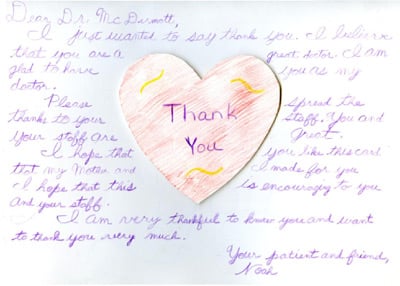 Dear Dr. McDermott,
I just wanted to say thank you. I believe
that you are a great doctor. I am
glad to have you as my
doctor.
Please spread the
thanks to your staff. You and
your staff are great.
I hope that you like this card
that my Mother and I made for you
I hope that this is encouraging to you
and your staff.
I am very thankful to know you and want
to thank you very much.
Your patient and friend,
Noah
Thank
You